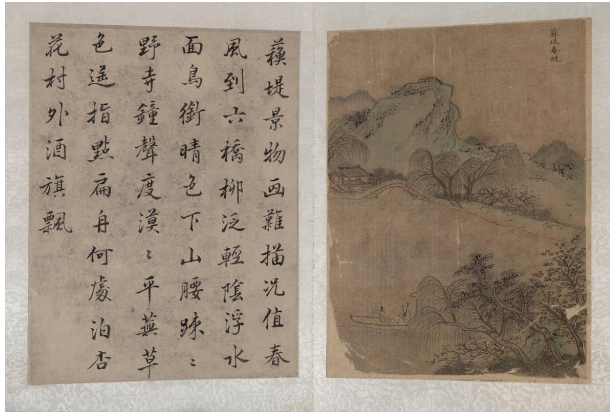 蘇堤景物画難描况值春
風到六橋柳泛輕陰浮水
面鳥銜晴色下山腰踈〻
野寺鐘聲度漠〻平蕪草
色遥指點扁舟何處泊杏
花村外酒旗飄
蘇堤春曉